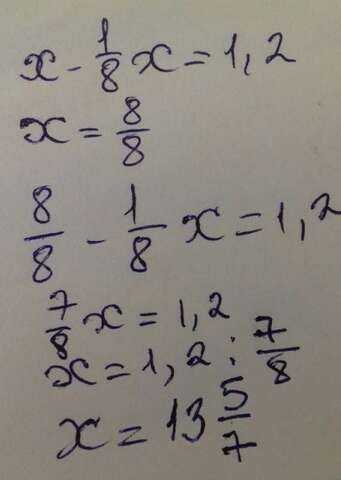 x - 1/8 x = 1,2
x = 8/8
8/8 - 1/8 x = 1,2
7/8 x = 1,2
x = 1,2 : 7/8
x = 13 5/7